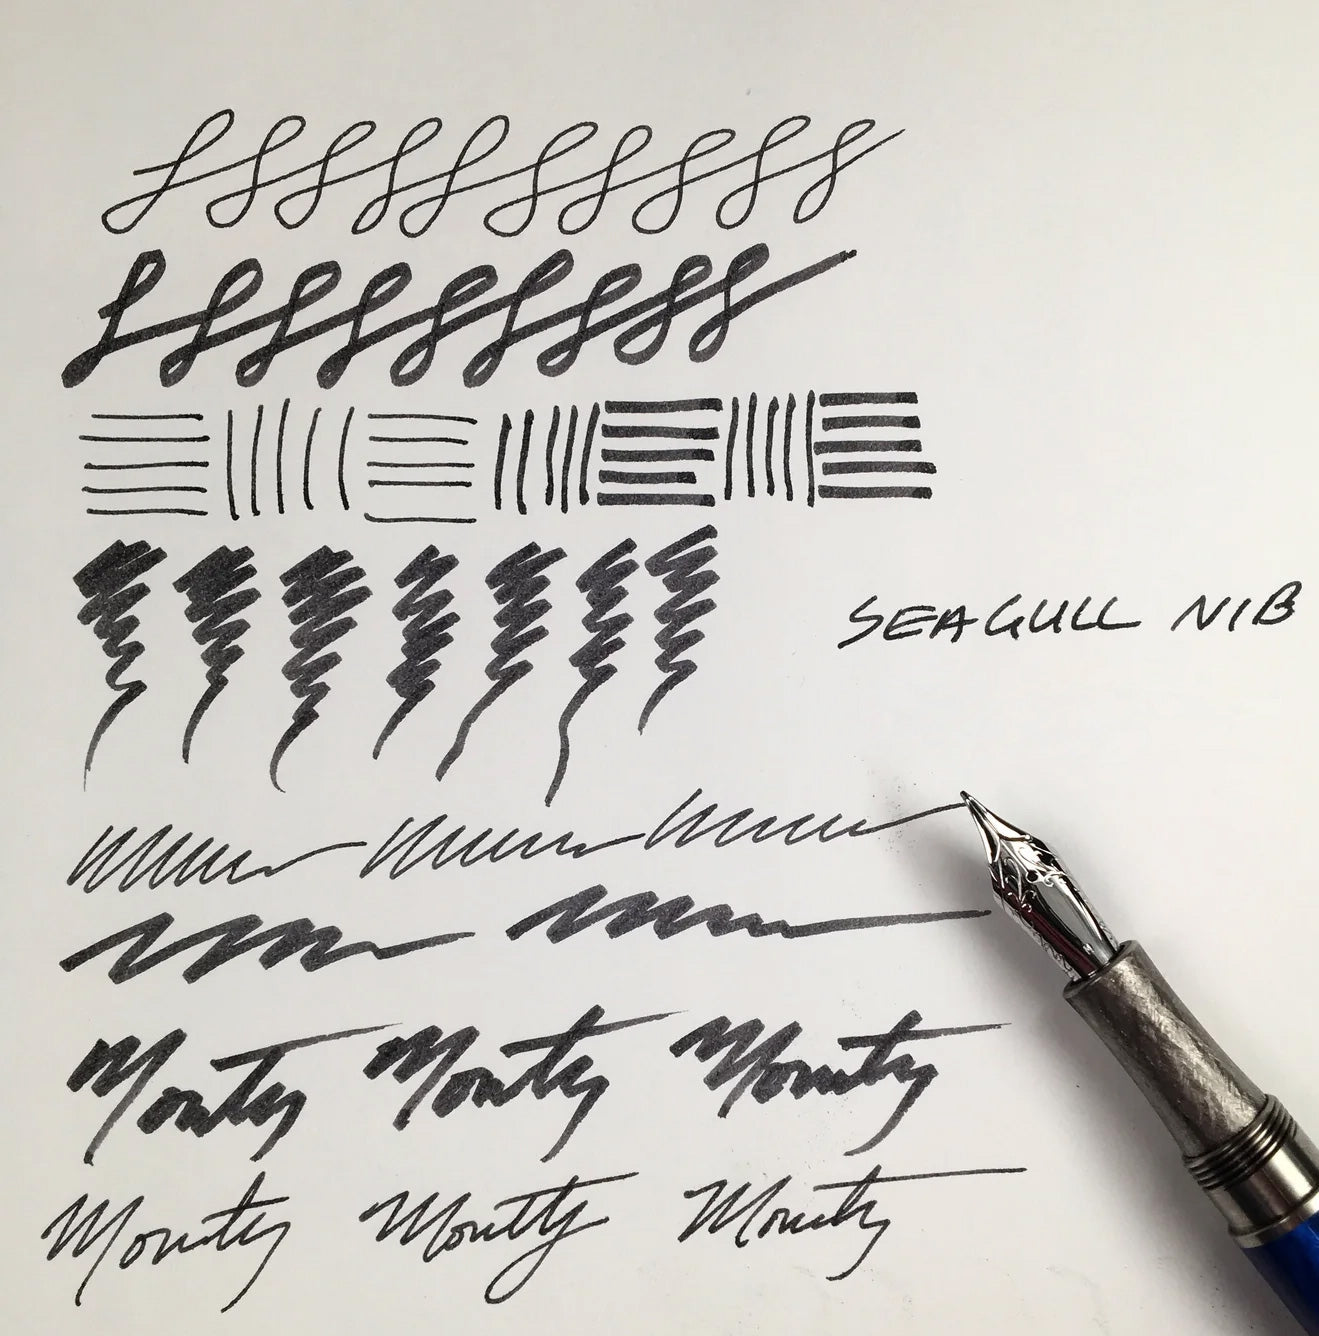 SEAGULL NIB
Monty Monty Monty
Monty Montty Monty